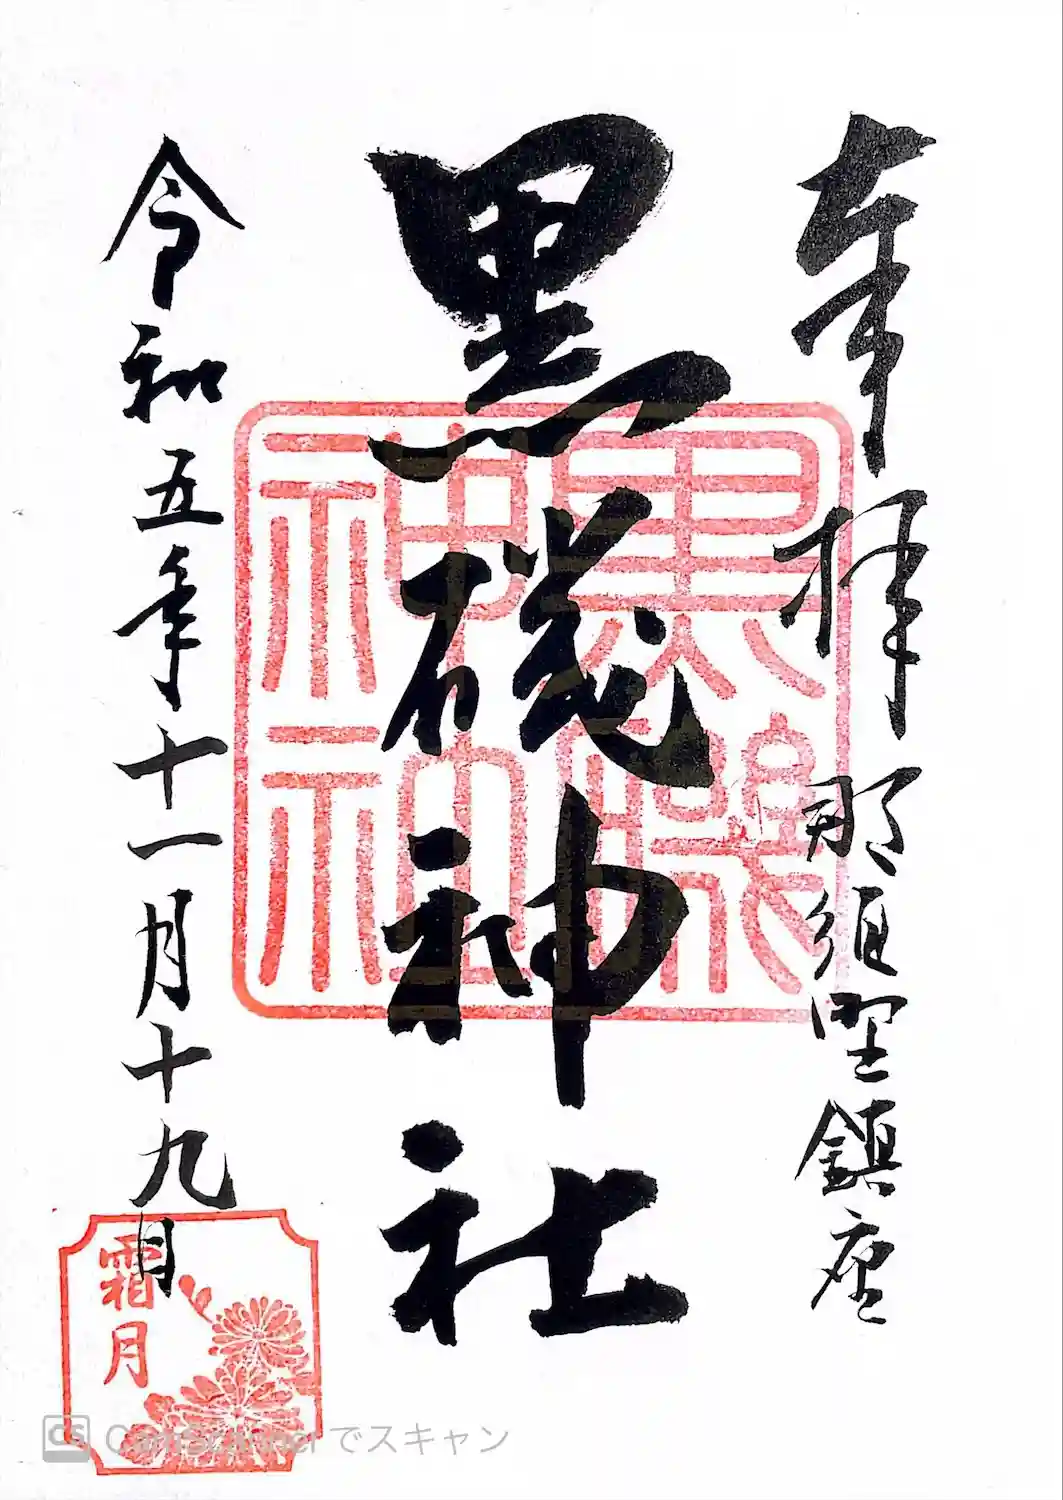 奉拝 那須野鎮座
黒磯神社
令和五年十一月十九日
黒磯神社
霜月
CS CamScannerでスキャン